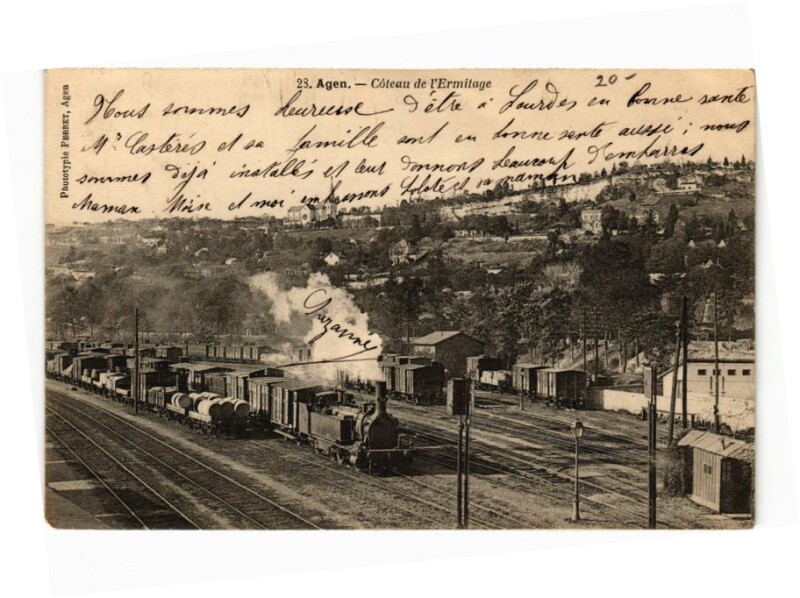 23. Agen. — Côteau de l'Ermitage
20-
Phototypie PERRET, Agen
Nous sommes heureuse d'être à Lourdes en bonne sante
Mr Castérés et sa famille sont en bonne sente aussi ; nous
sommes dèjà installés et leur donnons beaucoup d'emparras
Maman et moi embrassons Lolotte et sa maman
Suzanne